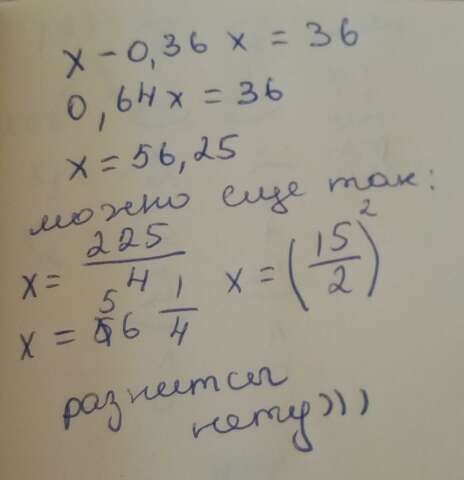 x - 0,36 x = 36
0,64x = 36
x = 56,25
можно еще так:
x = 225/4 x = (15/2)²
x = 56 1/4
разнитсы
нету)))